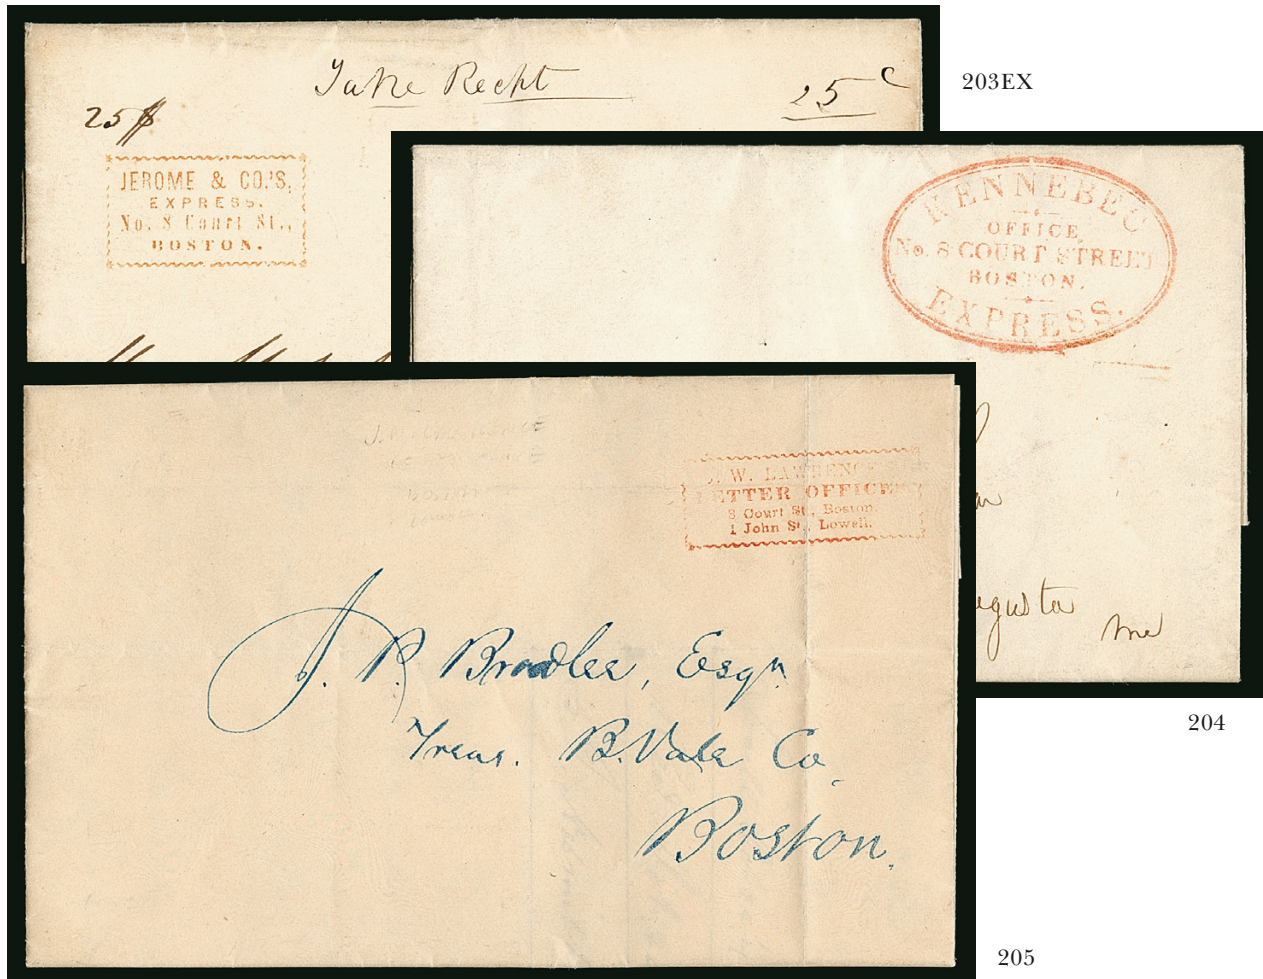 Take Recpt
25 c
25 $
JEROME & CO.'S,
EXPRESS.
No. 8 Court St.,
BOSTON.
203EX
KENNEBEC
OFFICE,
No. 8 COURT STREET
BOSTON.
EXPRESS.
Augusta
Me
204
J. W. LAWRENCE'S
LETTER OFFICE
8 Court St., Boston.
1 John St., Lowell.
J. P. Bradlee, Esqr.
Treas. B. Vale Co.
Boston.
205